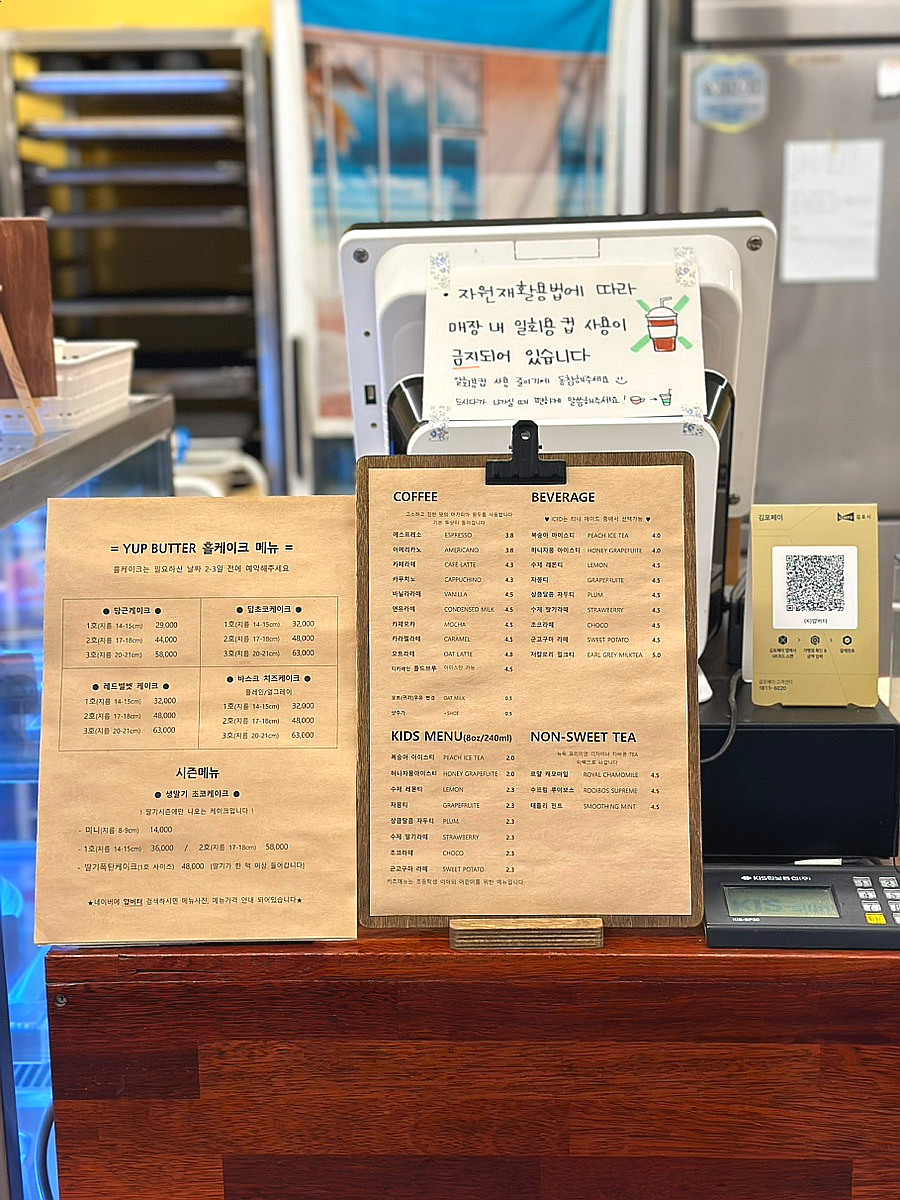 • 자원재활용법에 따라
매장 내 일회용 컵 사용이
금지되어 있습니다
일회용컵 사용 줄이기에 동참해주세요
드시다가 나가실 때 편하게 말씀해주세요!
= YUP BUTTER 홀케이크 메뉴 =
홀케이크는 필요하신 날짜 2-3일 전에 예약해주세요
● 당근케이크 ●
1호(지름 14-15cm) 29,000
2호(지름 17-18cm) 44,000
3호(지름 20-21cm) 58,000
● 딥초코케이크 ●
1호(지름 14-15cm) 32,000
2호(지름 17-18cm) 48,000
3호(지름 20-21cm) 63,000
● 레드벨벳 케이크 ●
1호(지름 14-15cm) 32,000
2호(지름 17-18cm) 48,000
3호(지름 20-21cm) 63,000
● 바스크 치즈케이크 ●
플레인/얼그레이
1호(지름 14-15cm) 32,000
2호(지름 17-18cm) 48,000
3호(지름 20-21cm) 63,000
시즌메뉴
● 생딸기 초코케이크 ●
! 딸기시즌에만 나오는 케이크입니다 !
- 미니(지름 8-9cm) 14,000
- 1호(지름 14-15cm) 36,000 / 2호(지름 17-18cm) 58,000
- 딸기폭탄케이크(1호 사이즈) 48,000 (딸기가 한 팩 이상 들어갑니다)
★네이버에 얍버터 검색하시면 메뉴사진, 메뉴가격 안내 되어있습니다★
COFFEE
고소하고 진한 맛의 아카키아 원두를 사용합니다
기본 투샷이 들어갑니다
에스프레소 ESPRESSO 3.8
아메리카노 AMERICANO 3.8
카페라떼 CAFÉ LATTE 4.3
카푸치노 CAPPUCHINO 4.3
바닐라라떼 VANILLA 4.5
연유라떼 CONDENSED MILK 4.5
카페모카 MOCHA 4.5
카라멜라떼 CARAMEL 4.5
오트라떼 OAT LATTE 4.8
디카페인 콜드브루 아이스만 가능 4.5
오트(귀리)우유 변경 OAT MILK 0.5
샷추가 +SHOT 0.5
BEVERAGE
♥ ICED는 티나 에이드 중에서 선택가능 ♥
복숭아 아이스티 PEACH ICE TEA 4.0
허니자몽 아이스티 HONEY GRAPEFUITE 4.0
수제 레몬티 LEMON 4.5
자몽티 GRAPEFRUITE 4.5
상큼달콤 자두티 PLUM 4.5
수제 딸기라떼 STRAWBERRY 4.5
초코라떼 CHOCO 4.5
군고구마 라떼 SWEET POTATO 4.5
저칼로리 밀크티 EARL GREY MILKTEA 5.0
KIDS MENU(8oz/240ml)
복숭아 아이스티 PEACH ICE TEA 2.0
허니자몽아이스티 HONEY GRAPEFUITE 2.0
수제 레몬티 LEMON 2.3
자몽티 GRAPEFRUITE 2.3
상큼달콤 자두티 PLUM 2.3
수제 딸기라떼 STRAWBERRY 2.3
초코라떼 CHOCO 2.3
군고구마 라떼 SWEET POTATO 2.3
키즈메뉴는 초등학생 이하의 어린이를 위한 메뉴입니다
NON-SWEET TEA
뉴욕 프리미엄 티
로얄 캐모마일 ROYAL CHAMOMILE 4.5
수프림 루이보스 ROOIBOS SUPREME 4.5
데들리 민트 SMOOTHING MINT 4.5
김포페이
김포시
(K)얍버터
김포페이 고객센터
1811-6020
KIS정보통신(주)
KIS-SP30